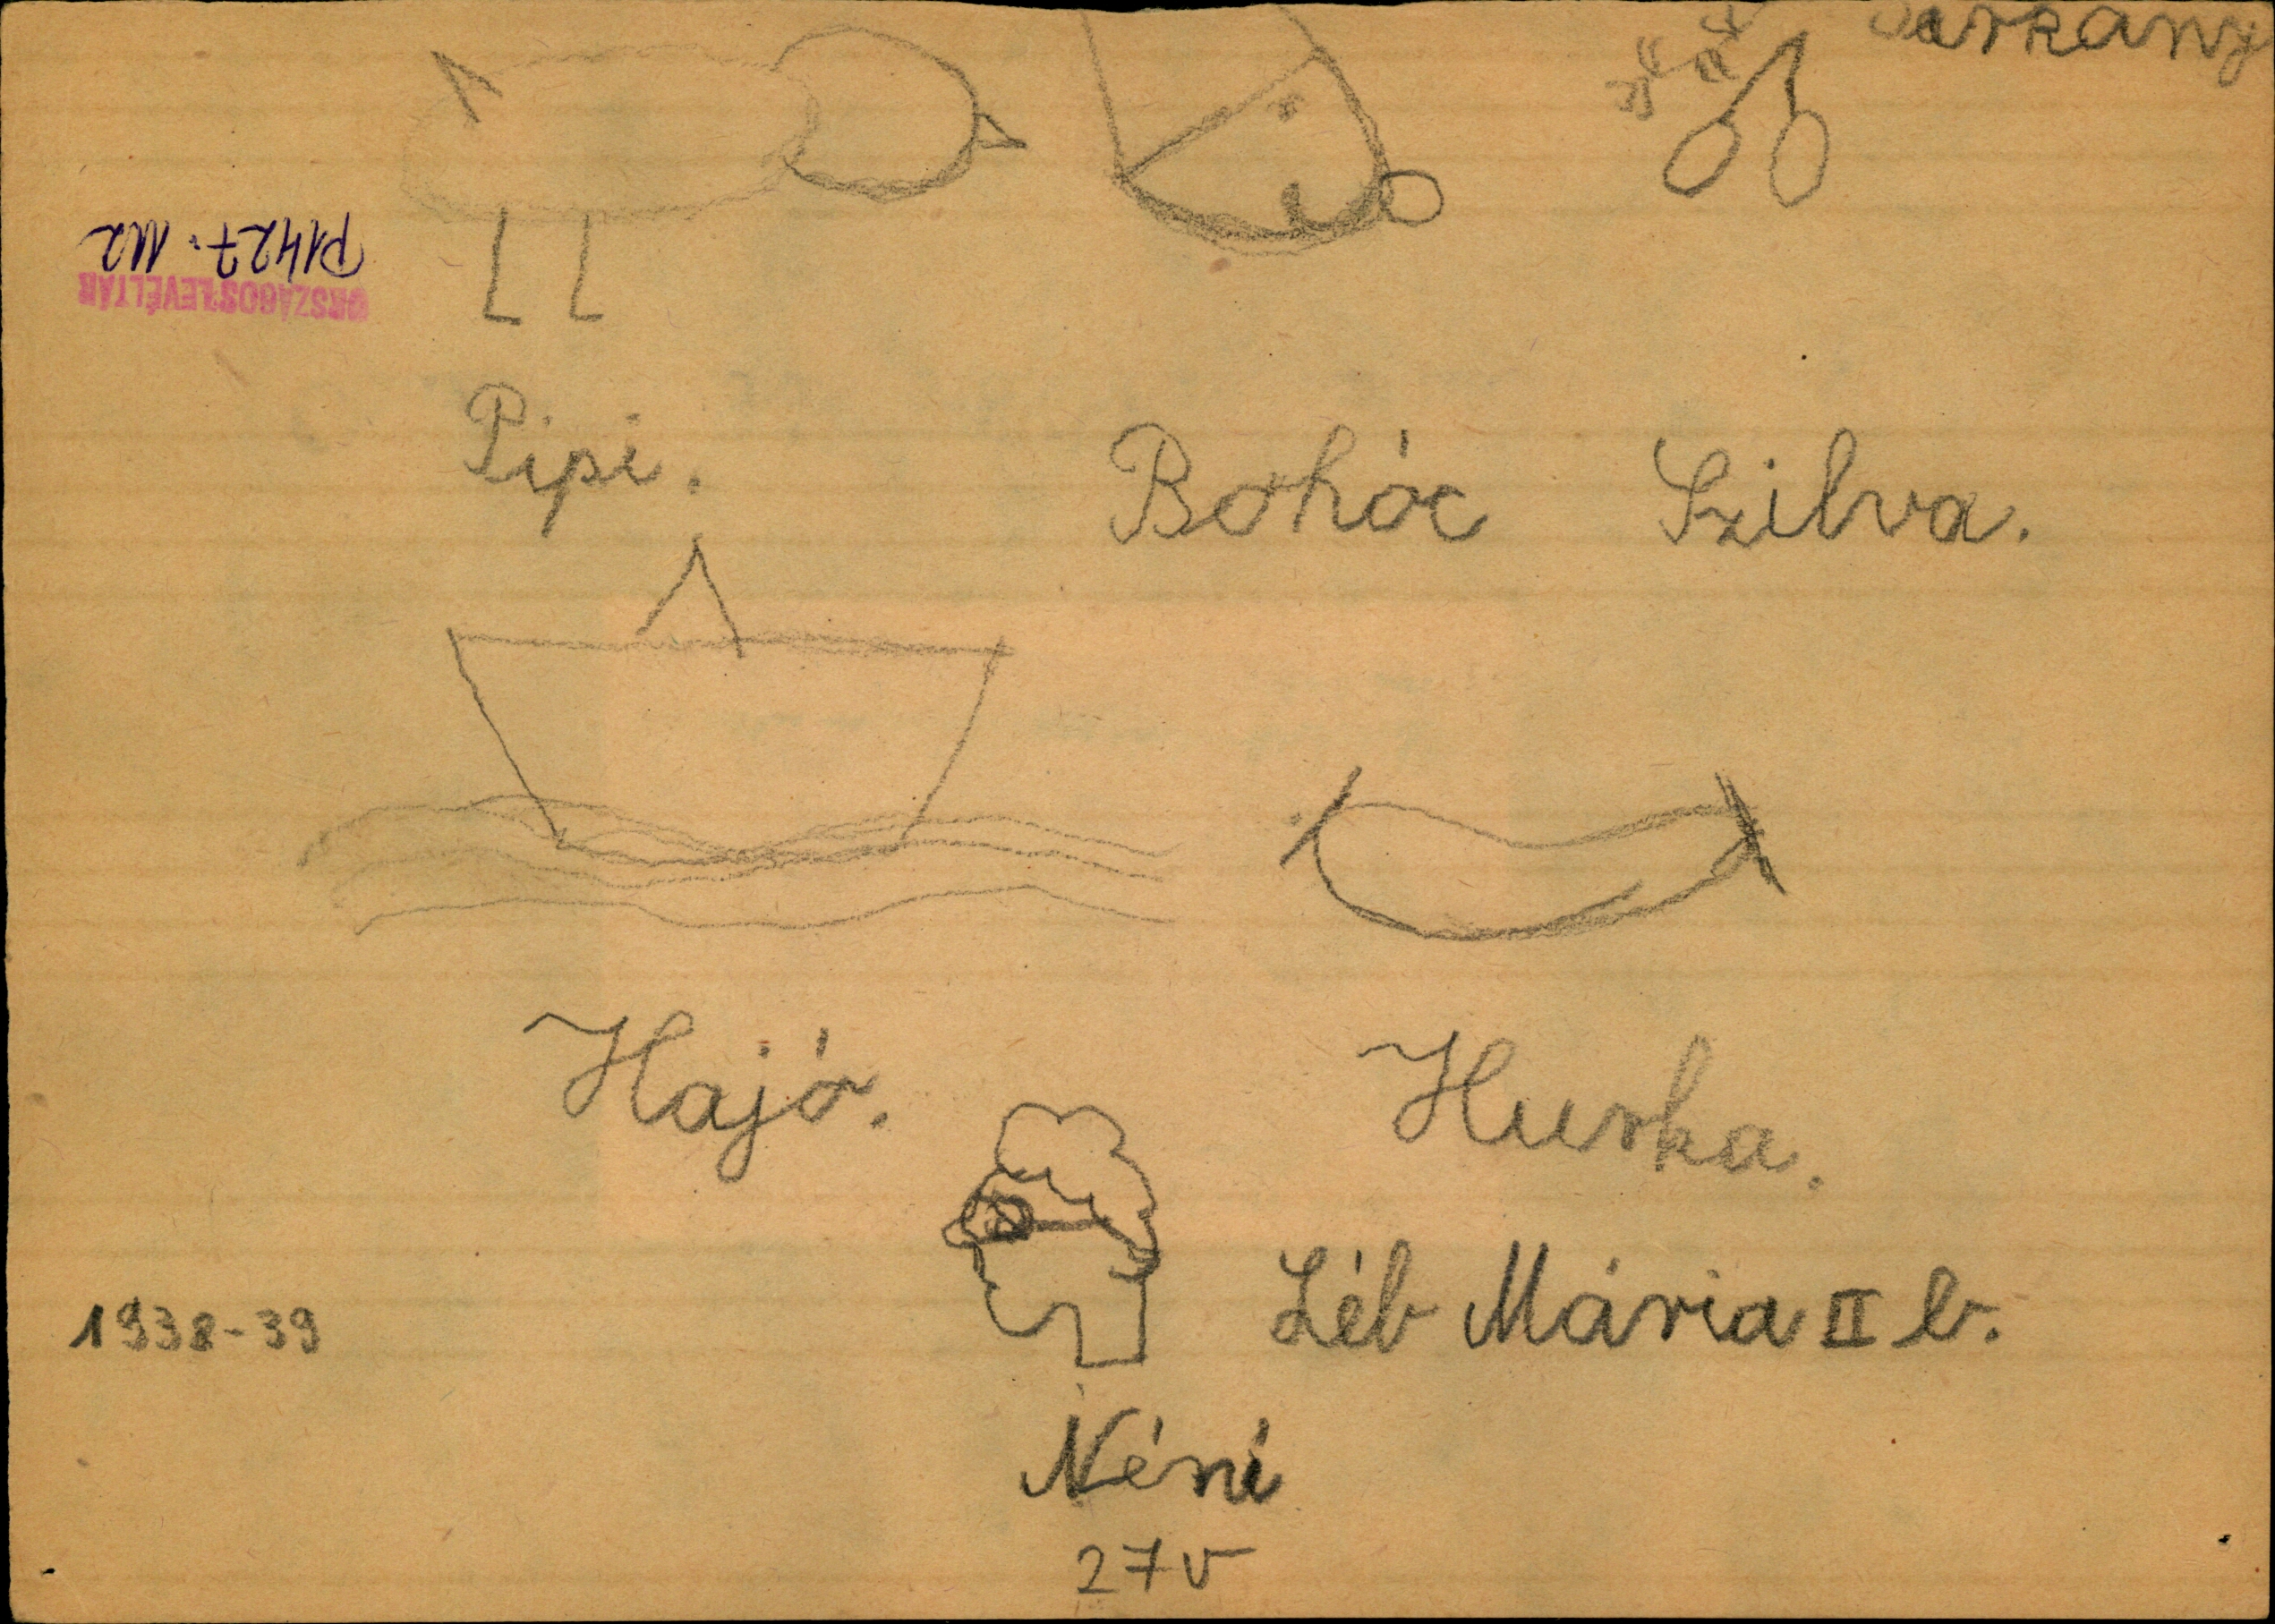 Sárkány
P1427. M2
ORSZÁGOS LEVÉLTÁR
Pipi.
Bohóc
Szilva.
Hajó.
Hurka.
1938-39
Léb Mária II b.
Néni
27v